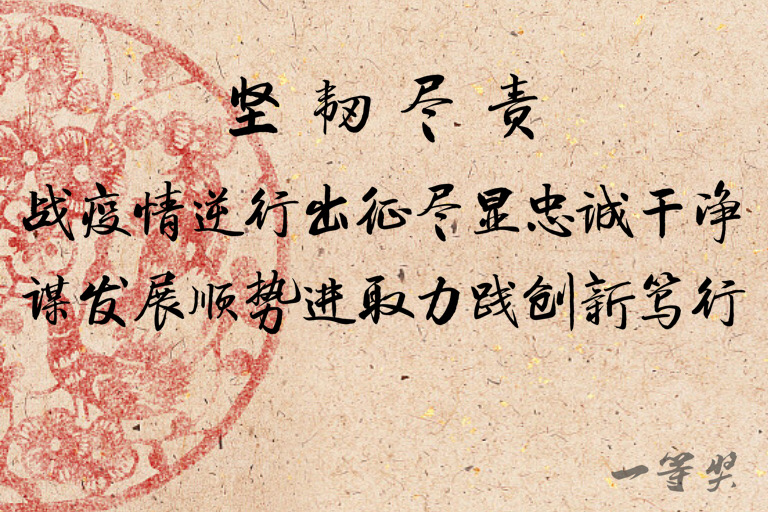 坚韧尽责
战疫情逆行出征尽显忠诚干净
谋发展顺势进取力践创新笃行
一等奖